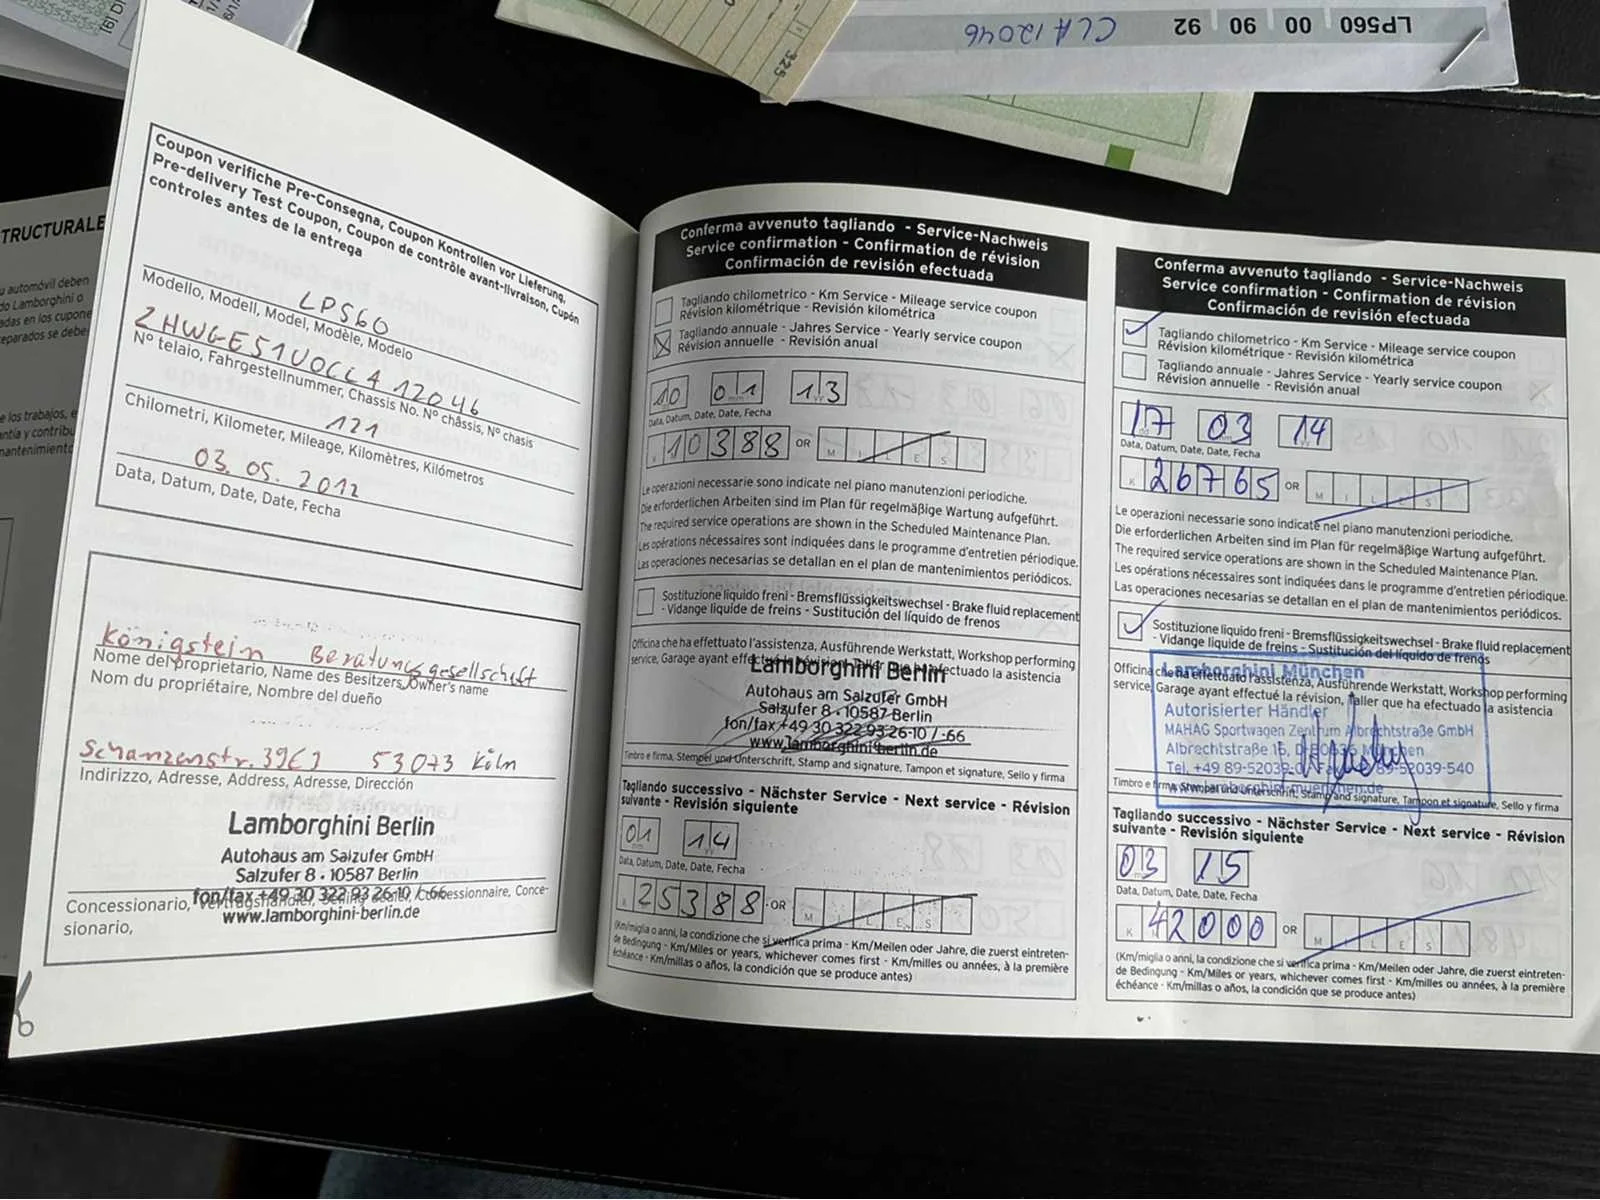 LP560 00 90 92
CLA12046
325
TRUCTURALE
u automóvil deben
do Lamborghini o
adas en los cupone
eparados se debe
e los trabajos, e
antía y contribu
mantenimiento
Coupon verifiche Pre-Consegna, Coupon Kontrollen vor Lieferung,
Pre-delivery Test Coupon, Coupon de contrôle avant-livraison, Cupón
controles antes de la entrega
LP560
Modello, Modell, Model, Modèle, Modelo
ZHWGE51U0CLA12046
N° telaio, Fahrgestellnummer, Chassis No. N° châssis, N° chasis
121
Chilometri, Kilometer, Mileage, Kilomètres, Kilómetros
03. 05. 2012
Data, Datum, Date, Date, Fecha
Königstein Beratungsgesellschaft
Nome del proprietario, Name des Besitzers, Owner's name
Nom du propriétaire, Nombre del dueño
53073 Köln
Indirizzo, Adresse, Address, Adresse, Dirección
Lamborghini Berlin
Autohaus am Salzufer GmbH
Salzufer 8 · 10587 Berlin
fon/fax +49 30 322 93 26-10 / -66
www.lamborghini-berlin.de
Concessionario, Vertragshändler, Selling dealer, Concessionnaire, Conce-
sionario,
6
Conferma avvenuto tagliando - Service-Nachweis
Service confirmation - Confirmation de révision
Confirmación de revisión efectuada
Tagliando chilometrico - Km Service - Mileage service coupon
Révision kilométrique - Revisión kilométrica
Tagliando annuale - Jahres Service - Yearly service coupon
Révision annuelle - Revisión anual
10 01 13
Data, Datum, Date, Date, Fecha
K 10388 OR MILES
Le operazioni necessarie sono indicate nel piano manutenzioni periodiche.
Die erforderlichen Arbeiten sind im Plan für regelmäßige Wartung aufgeführt.
The required service operations are shown in the Scheduled Maintenance Plan.
Les opérations nécessaires sont indiquées dans le programme d'entretien périodique.
Las operaciones necesarias se detallan en el plan de mantenimientos periódicos.
Sostituzione liquido freni - Bremsflüssigkeitswechsel - Brake fluid replacement
- Vidange liquide de freins - Sustitución del líquido de frenos
Officina che ha effettuato l'assistenza, Ausführende Werkstatt, Workshop performing
service, Garage ayant effectué la révision, Taller que ha efectuado la asistencia
Lamborghini Berlin
Autohaus am Salzufer GmbH
Salzufer 8 · 10587 Berlin
fon/fax +49 30 322 93 26-10 / -66
www.lamborghini-berlin.de
Timbro e firma, Stempel und Unterschrift, Stamp and signature, Tampon et signature, Sello y firma
Tagliando successivo - Nächster Service - Next service - Révision
suivante - Revisión siguiente
01 14
Data, Datum, Date, Date, Fecha
K 25388 OR MILES
(Km/miglia o anni, la condizione che si verifica prima - Km/Meilen oder Jahre, die zuerst eintreten-
de Bedingung - Km/Miles or years, whichever comes first - Km/milles ou années, à la première
échéance - Km/millas o años, la condición que se produce antes)
Conferma avvenuto tagliando - Service-Nachweis
Service confirmation - Confirmation de révision
Confirmación de revisión efectuada
Tagliando chilometrico - Km Service - Mileage service coupon
Révision kilométrique - Revisión kilométrica
Tagliando annuale - Jahres Service - Yearly service coupon
Révision annuelle - Revisión anual
17 03 14
Data, Datum, Date, Date, Fecha
K 26765 OR MILES
Le operazioni necessarie sono indicate nel piano manutenzioni periodiche.
Die erforderlichen Arbeiten sind im Plan für regelmäßige Wartung aufgeführt.
The required service operations are shown in the Scheduled Maintenance Plan.
Les opérations nécessaires sont indiquées dans le programme d'entretien périodique.
Las operaciones necesarias se detallan en el plan de mantenimientos periódicos.
Sostituzione liquido freni - Bremsflüssigkeitswechsel - Brake fluid replacement
- Vidange liquide de freins - Sustitución del líquido de frenos
Officina che ha effettuato l'assistenza, Ausführende Werkstatt, Workshop performing
service, Garage ayant effectué la révision, Taller que ha efectuado la asistencia
Lamborghini München
Autorisierter Händler
MAHAG Sportwagen Zentrum Albrechtstraße GmbH
Albrechtstraße 16, D-80636 München
Tel. +49 89-52039-0, Fax 89-52039-540
www.lamborghini-muenchen.de
Timbro e firma, Stempel und Unterschrift, Stamp and signature, Tampon et signature, Sello y firma
Tagliando successivo - Nächster Service - Next service - Révision
suivante - Revisión siguiente
03 15
Data, Datum, Date, Date, Fecha
K 42000 OR MILES
(Km/miglia o anni, la condizione che si verifica prima - Km/Meilen oder Jahre, die zuerst eintreten-
de Bedingung - Km/Miles or years, whichever comes first - Km/milles ou années, à la première
échéance - Km/millas o años, la condición que se produce antes)